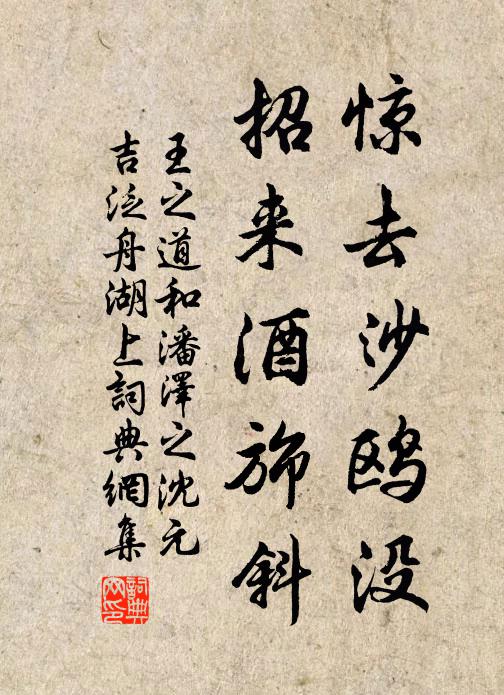 惊去沙鸥没
招来酒旆斜
王之道和潘澤之沈元
吉泛舟湖上詞典網集
詞典网印